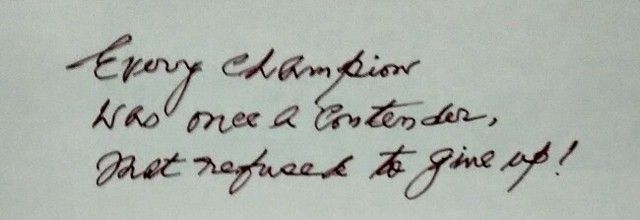 Every champion
was once a contender,
that refused to give up!